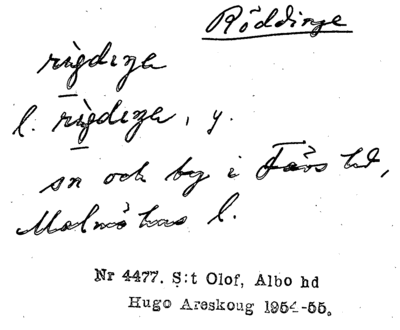 Röddinge
rìgdıŋa
l. rìgdıŋa, y.
sn och by i Färs hd,
Malmöhus l.
Nr 4477. S:t Olof, Albo hd
Hugo Areskoug 1954-55.